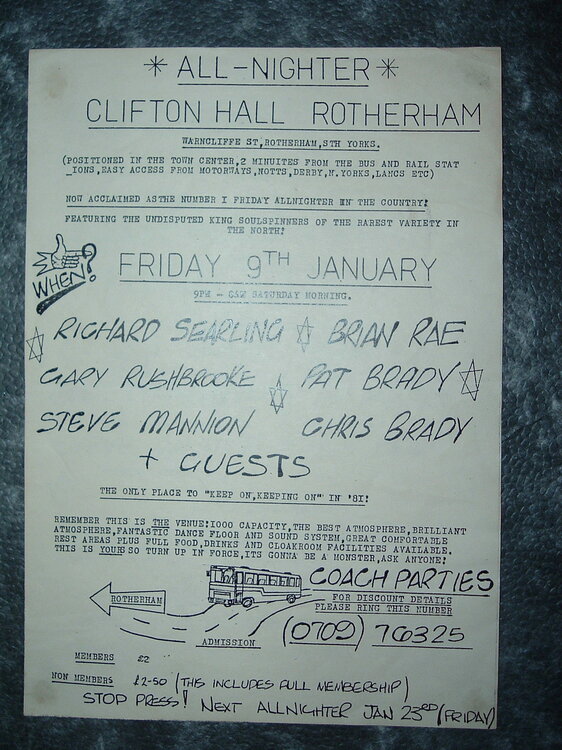 * ALL-NIGHTER *
CLIFTON HALL ROTHERHAM
WARNCLIFFE ST,ROTHERHAM,STH YORKS.
(POSITIONED IN THE TOWN CENTER,2 MINUITES FROM THE BUS AND RAIL STAT
_IONS,EASY ACCESS FROM MOTORWAYS,NOTTS,DERBY,N.YORKS,LANCS ETC)
NOW ACCLAIMED ASTHE NUMBER I FRIDAY ALLNIGHTER IN THE COUNTRY!
FEATURING THE UNDISPUTED KING SOULSPINNERS OF THE RAREST VARIETY IN
THE NORTH!
WHEN?
FRIDAY 9TH JANUARY
9PM - SATURDAY MORNING.
RICHARD SEARLING ☆ BRIAN RAE
GARY RUSHBROOKE ☆ PAT BRADY ☆
STEVE MANNION CHRIS BRADY
+ GUESTS
THE ONLY PLACE TO "KEEP ON,KEEPING ON" IN '8I!
REMEMBER THIS IS THE VENUE!IOOO CAPACITY,THE BEST ATMOSPHERE,BRILLIANT
ATMOSPHERE,FANTASTIC DANCE FLOOR AND SOUND SYSTEM,GREAT COMFORTABLE
REST AREAS PLUS FULL FOOD,DRINKS AND CLOAKROOM FACILITIES AVAILABLE.
THIS IS YOURS SO TURN UP IN FORCE,ITS GONNA BE A MONSTER,ASK ANYONE!
COACH PARTIES
ROTHERHAM
FOR DISCOUNT DETAILS
PLEASE RING THIS NUMBER
(0709) 76325
ADMISSION
MEMBERS £2
NON MEMBERS £2-50 (THIS INCLUDES FULL MEMBERSHIP)
STOP PRESS! NEXT ALLNIGHTER JAN 23RD (FRIDAY)